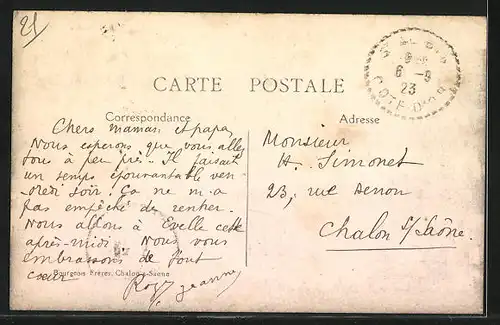 21
CARTE POSTALE
CÔTE-D'OR
6 -9
23
Correspondance
Adresse
Chers maman et papa,
Nous esperons que vous allez
tous à peu près. Il faisait
un temps épouvantable ven-
dredi soir. Ça ne m'a
pas empêché de rentrer.
Nous allons à Evelle cette
après-midi. Nous vous
embrassons de tout
cœur
Roger Jeanne
Monsieur
H. Simonet
23, rue Denon
Chalon s/Saône.
Bourgeois Frères, Chalon-s-Saône